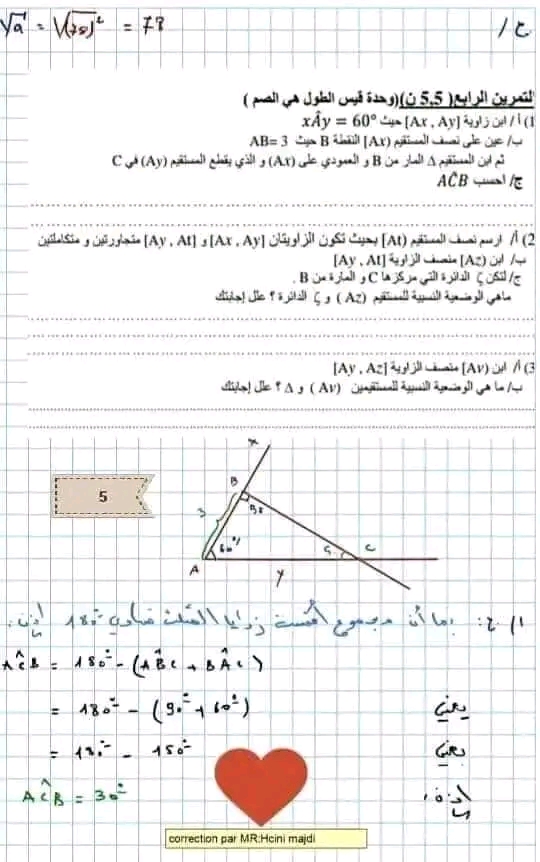 ج/
√a = √(78)² = 78
التمرين الرابع( 5,5 ن)(وحدة قيس الطول هي الصم )
1) أ/ ابن زاوية [Ax , Ay] حيث xÂy = 60°
ب/ عين على نصف المستقيم (Ax] النقطة B حيث AB= 3
ثم ابن المستقيم Δ المار من B و العمودي على (Ax) و الذي يقطع المستقيم (Ay) في C
ج/ احسب AĈB
2) أ/ ارسم نصف المستقيم (At] بحيث تكون الزاويتان [Ax , Ay] و [Ay , At] متجاورتين و متكاملتين
ب/ ابن (Az] منصف الزاوية [Ay , At]
ج/ لتكن ζ الدائرة التي مركزها C و المارة من B .
ماهي الوضعية النسبية للمستقيم (Az ) و ζ الدائرة ؟ علل إجابتك
3) أ/ ابن (Av] منصف الزاوية [Ay , Az]
ب/ ما هي الوضعية النسبية للمستقيمين (Av ) و Δ ؟ علل إجابتك
x
B
5
3
60°
A
C
y
1/ ج: بما أن مجموع أقيسة زوايا المثلث تساوي 180° إذن:
AĈB = 180° - (AB̂C + BÂC)
يعني = 180° - (90° + 60°)
يعني = 180° - 150°
إذن: AĈB = 30°
correction par MR:Hcini majdi